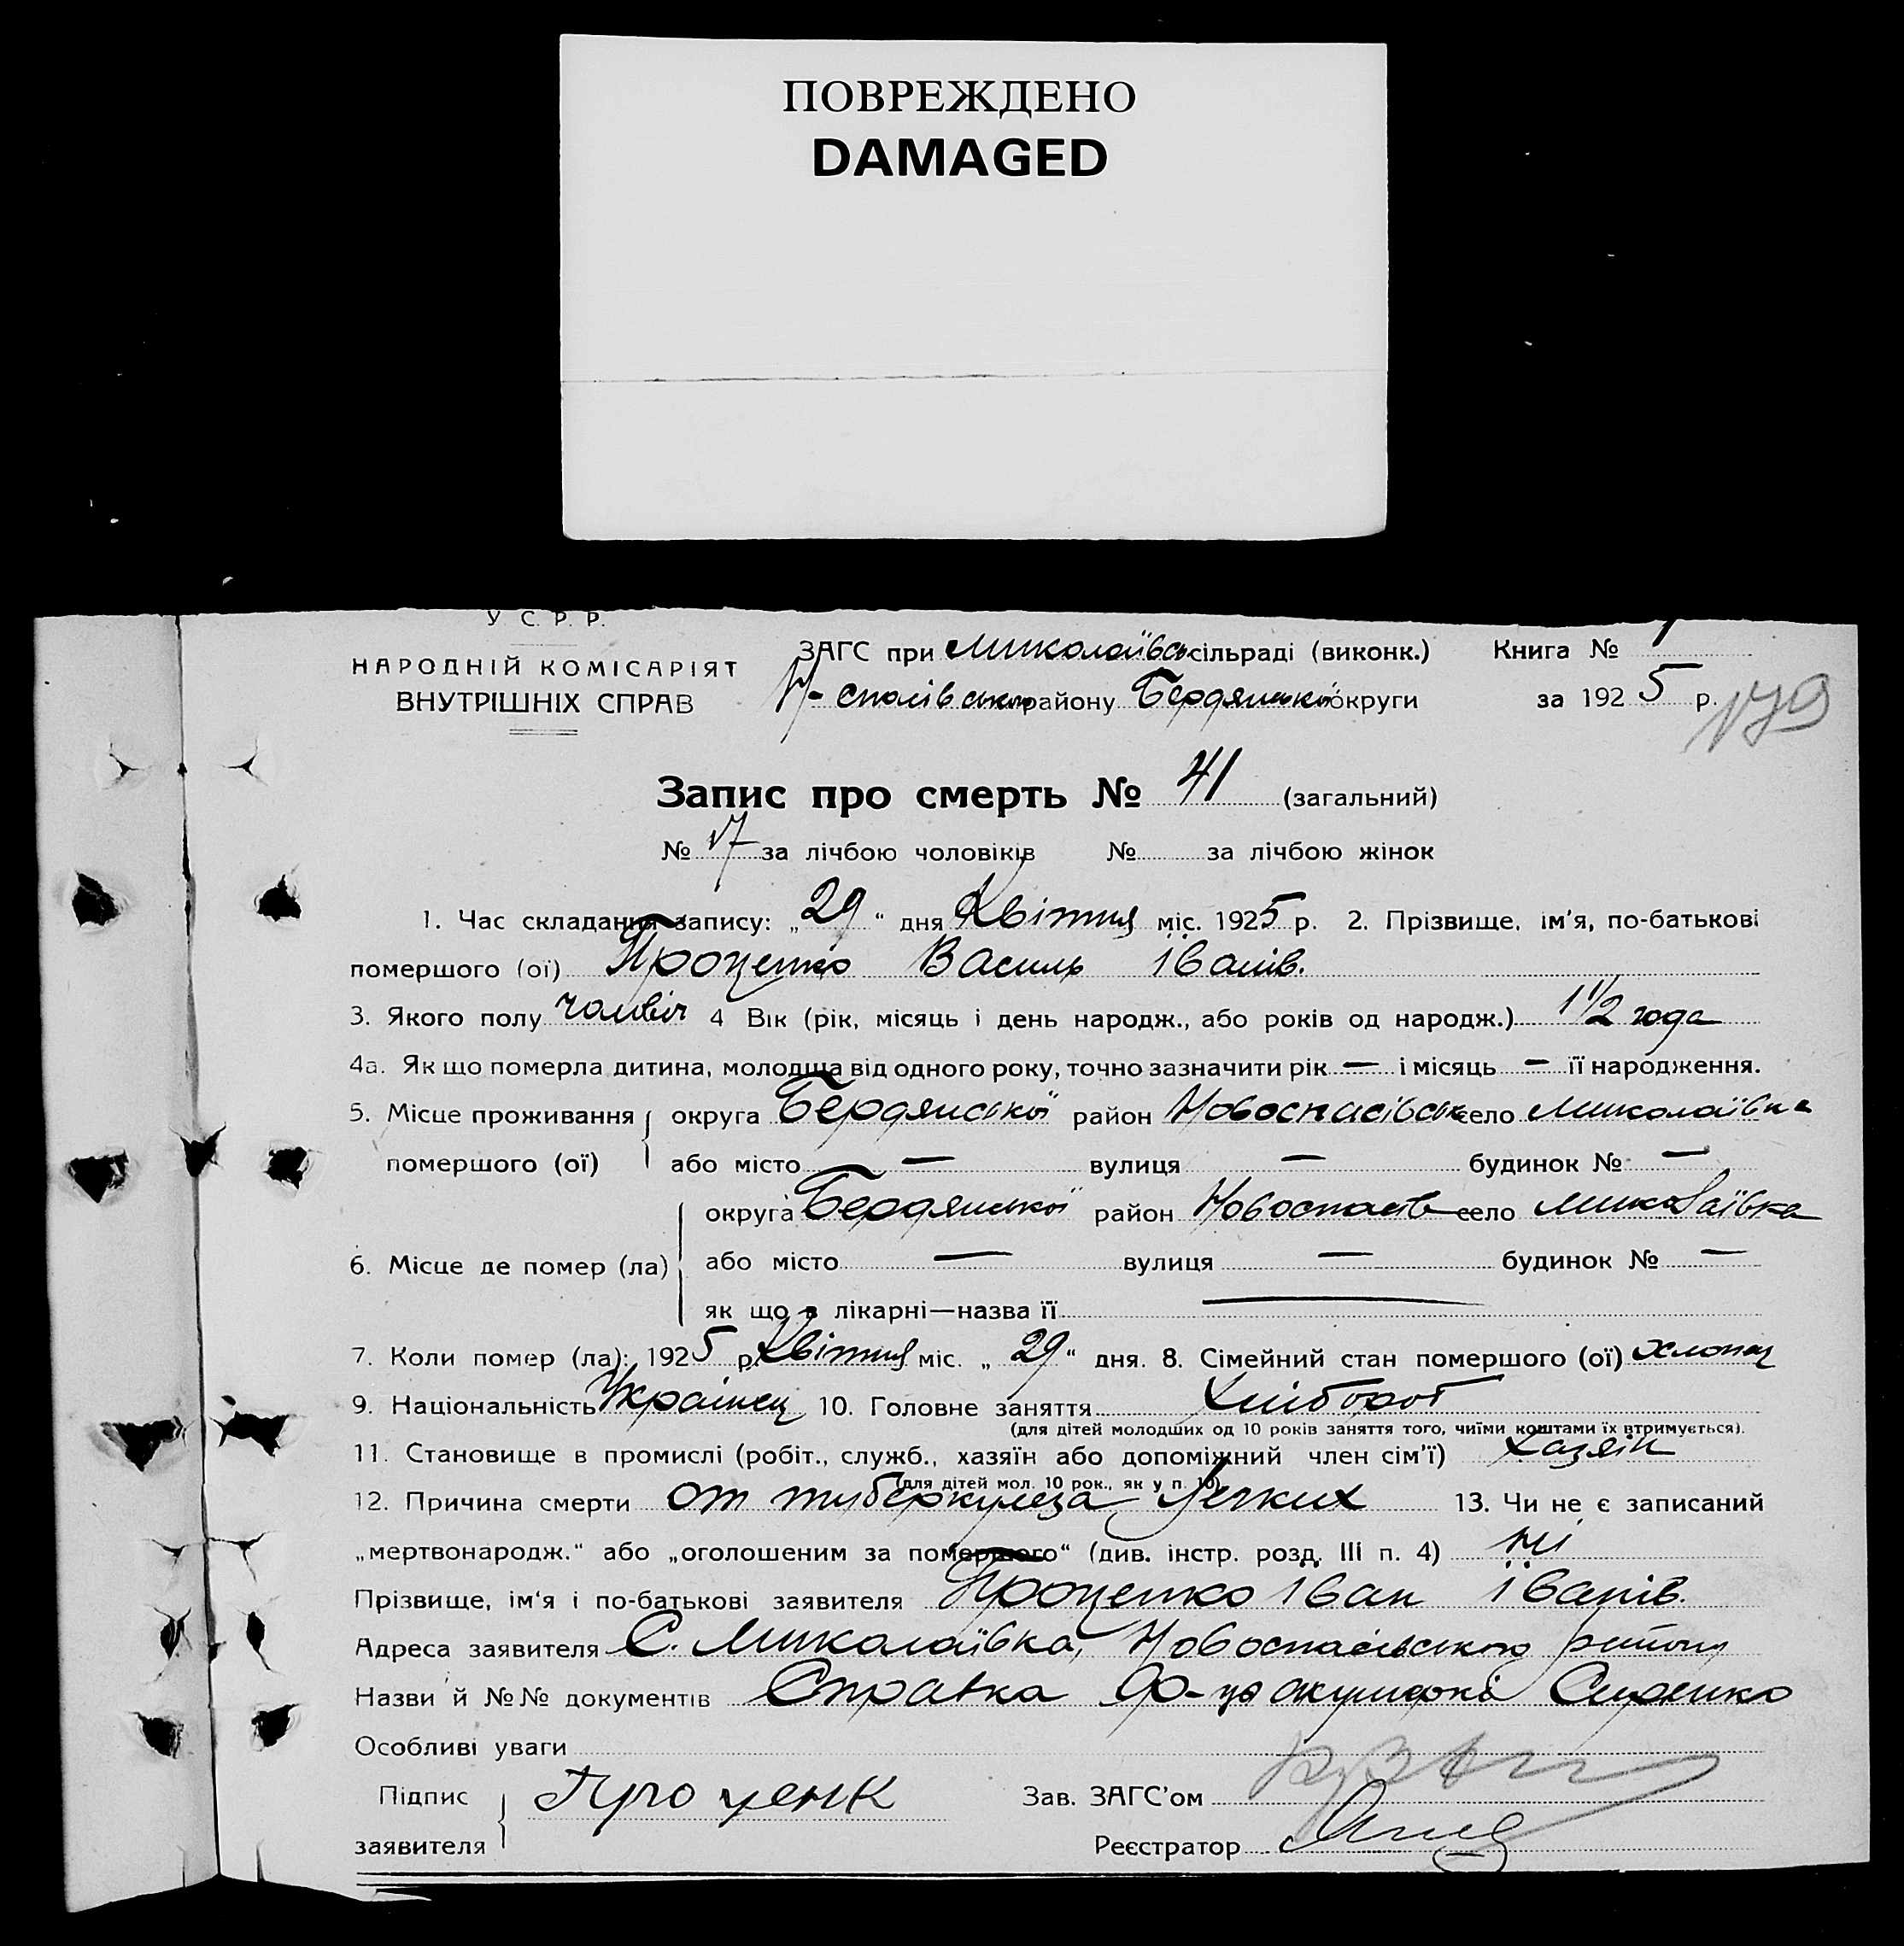 ПОВРЕЖДЕНО
DAMAGED
У С. Р. Р.
НАРОДНІЙ КОМІСАРІЯТ
ВНУТРІШНІХ СПРАВ
ЗАГС при Миколаївсь сільраді (виконк.) Книга №
району Бердянської округи за 1925 р.
179
Запис про смерть № 41 (загальний)
№ 17 за лічбою чоловіків № за лічбою жінок
1. Час складання запису: „29“ дня Квітня міс. 1925 р. 2. Прізвище, ім'я, по-батькові
помершого (ої) Проценко Василь Іванів.
3. Якого полу чоловіч 4 Вік (рік, місяць і день народж., або років од народж.) 1 1/2 года
4а. Як що померла дитина, молодща від одного року, точно зазначити рік — і місяць — її народження.
5. Місце проживання округа Бердянської район Новоспасівськ село Миколаївка
помершого (ої) або місто — вулиця — будинок № —
округа Бердянської район Новоспасів село Миколаївка
6. Місце де помер (ла) або місто — вулиця — будинок № —
як що в лікарні—назва її —
7. Коли помер (ла): 1925 р. Квітня міс. „29“ дня. 8. Сімейний стан помершого (ої) хлопец
9. Національність Українец 10. Головне заняття Хлібороб
(для дітей молодших од 10 років заняття того, чиїми коштами їх втримується).
11. Становище в промислі (робіт., служб., хазяїн або допоміжний член сім'ї) хазяін
(для дітей мол. 10 рок., як у п. 10)
12. Причина смерти от туберкулеза Легких 13. Чи не є записаний
„мертвонародж.“ або „оголошеним за помершого“ (див. інстр. розд. III п. 4) ні
Прізвище, ім'я і по-батькові заявителя Проценко Іван Іванів.
Адреса заявителя С. Миколаївка, Новоспасівського району
Назви й №№ документів Справка
Особливі уваги
Підпис Проценк Зав. ЗАГС'ом
заявителя Реєстратор